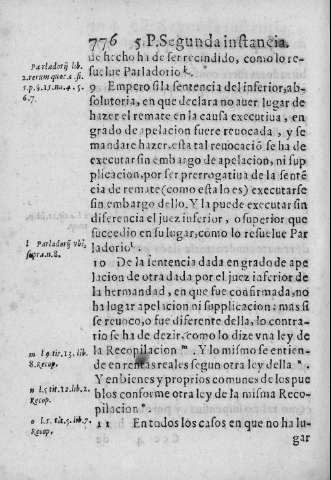 776 5. P. Segunda instancia.
de hecho ha de ser rescindido, como lo re-
suelue Parladorio k.
9 Empero si la sentencia del inferior, ab-
solutoria, en que declara no auer lugar de
hazer el remate en la causa executiua, en
grado de apelacion fuere reuocada, y se
mandare hazer, esta tal reuocaciõ se ha de
executar sin embargo de apelacion, ni sup
plicacion, por ser prerrogatiua de la sentẽ
cia de remate (como esta lo es) executarse
sin embargo dello. Y la puede executar sin
diferencia el juez inferior, o superior que
succedio en su lugar, como lo resuelue Par
ladorio l.
10 De la sentencia dada en grado de ape
lacion de otra dada por el juez inferior de
la hermandad, en que fue confirmada, no
ha lugar apelacion ni supplicacion: mas si
se reuoco, o fue diferente della, lo contra-
rio se ha de dezir, como lo dize vna ley de
la Recopilacion m. Y lo mismo se entien-
de en rentas reales segun otra ley della n.
Y en bienes y proprios comunes de los pue
blos conforme otra ley de la misma Reco-
pilacion o.
11 En todos los casos en que no ha lu-
gar
Parladorij lib.
2. rerum quot. 2. fi.
5. p. §. 15. nu. 4. 5.
6. 7.
l Parladorij vbi
supra. n. 8.
m l. 9. tit. 13. lib.
8. Recop.
n l. 5. tit. 12. lib. 2.
Recop.
o l. 5. tit. 5. lib. 7.
Recop.